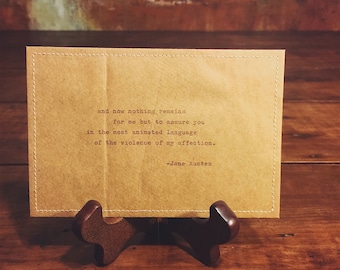 and now nothing remains
for me but to assure you
in the most animated language
of the violence of my affection.
-Jane Austen